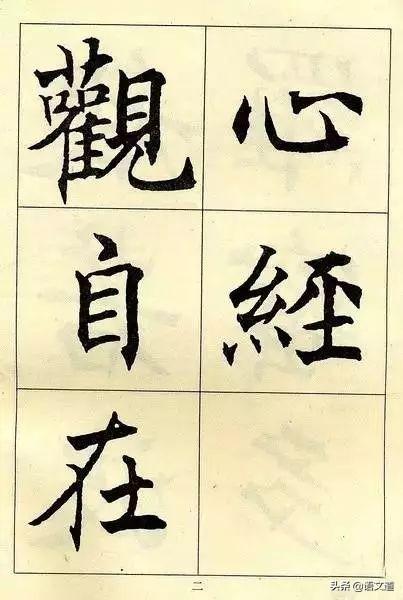 心經
觀自在
二
头条@语文道